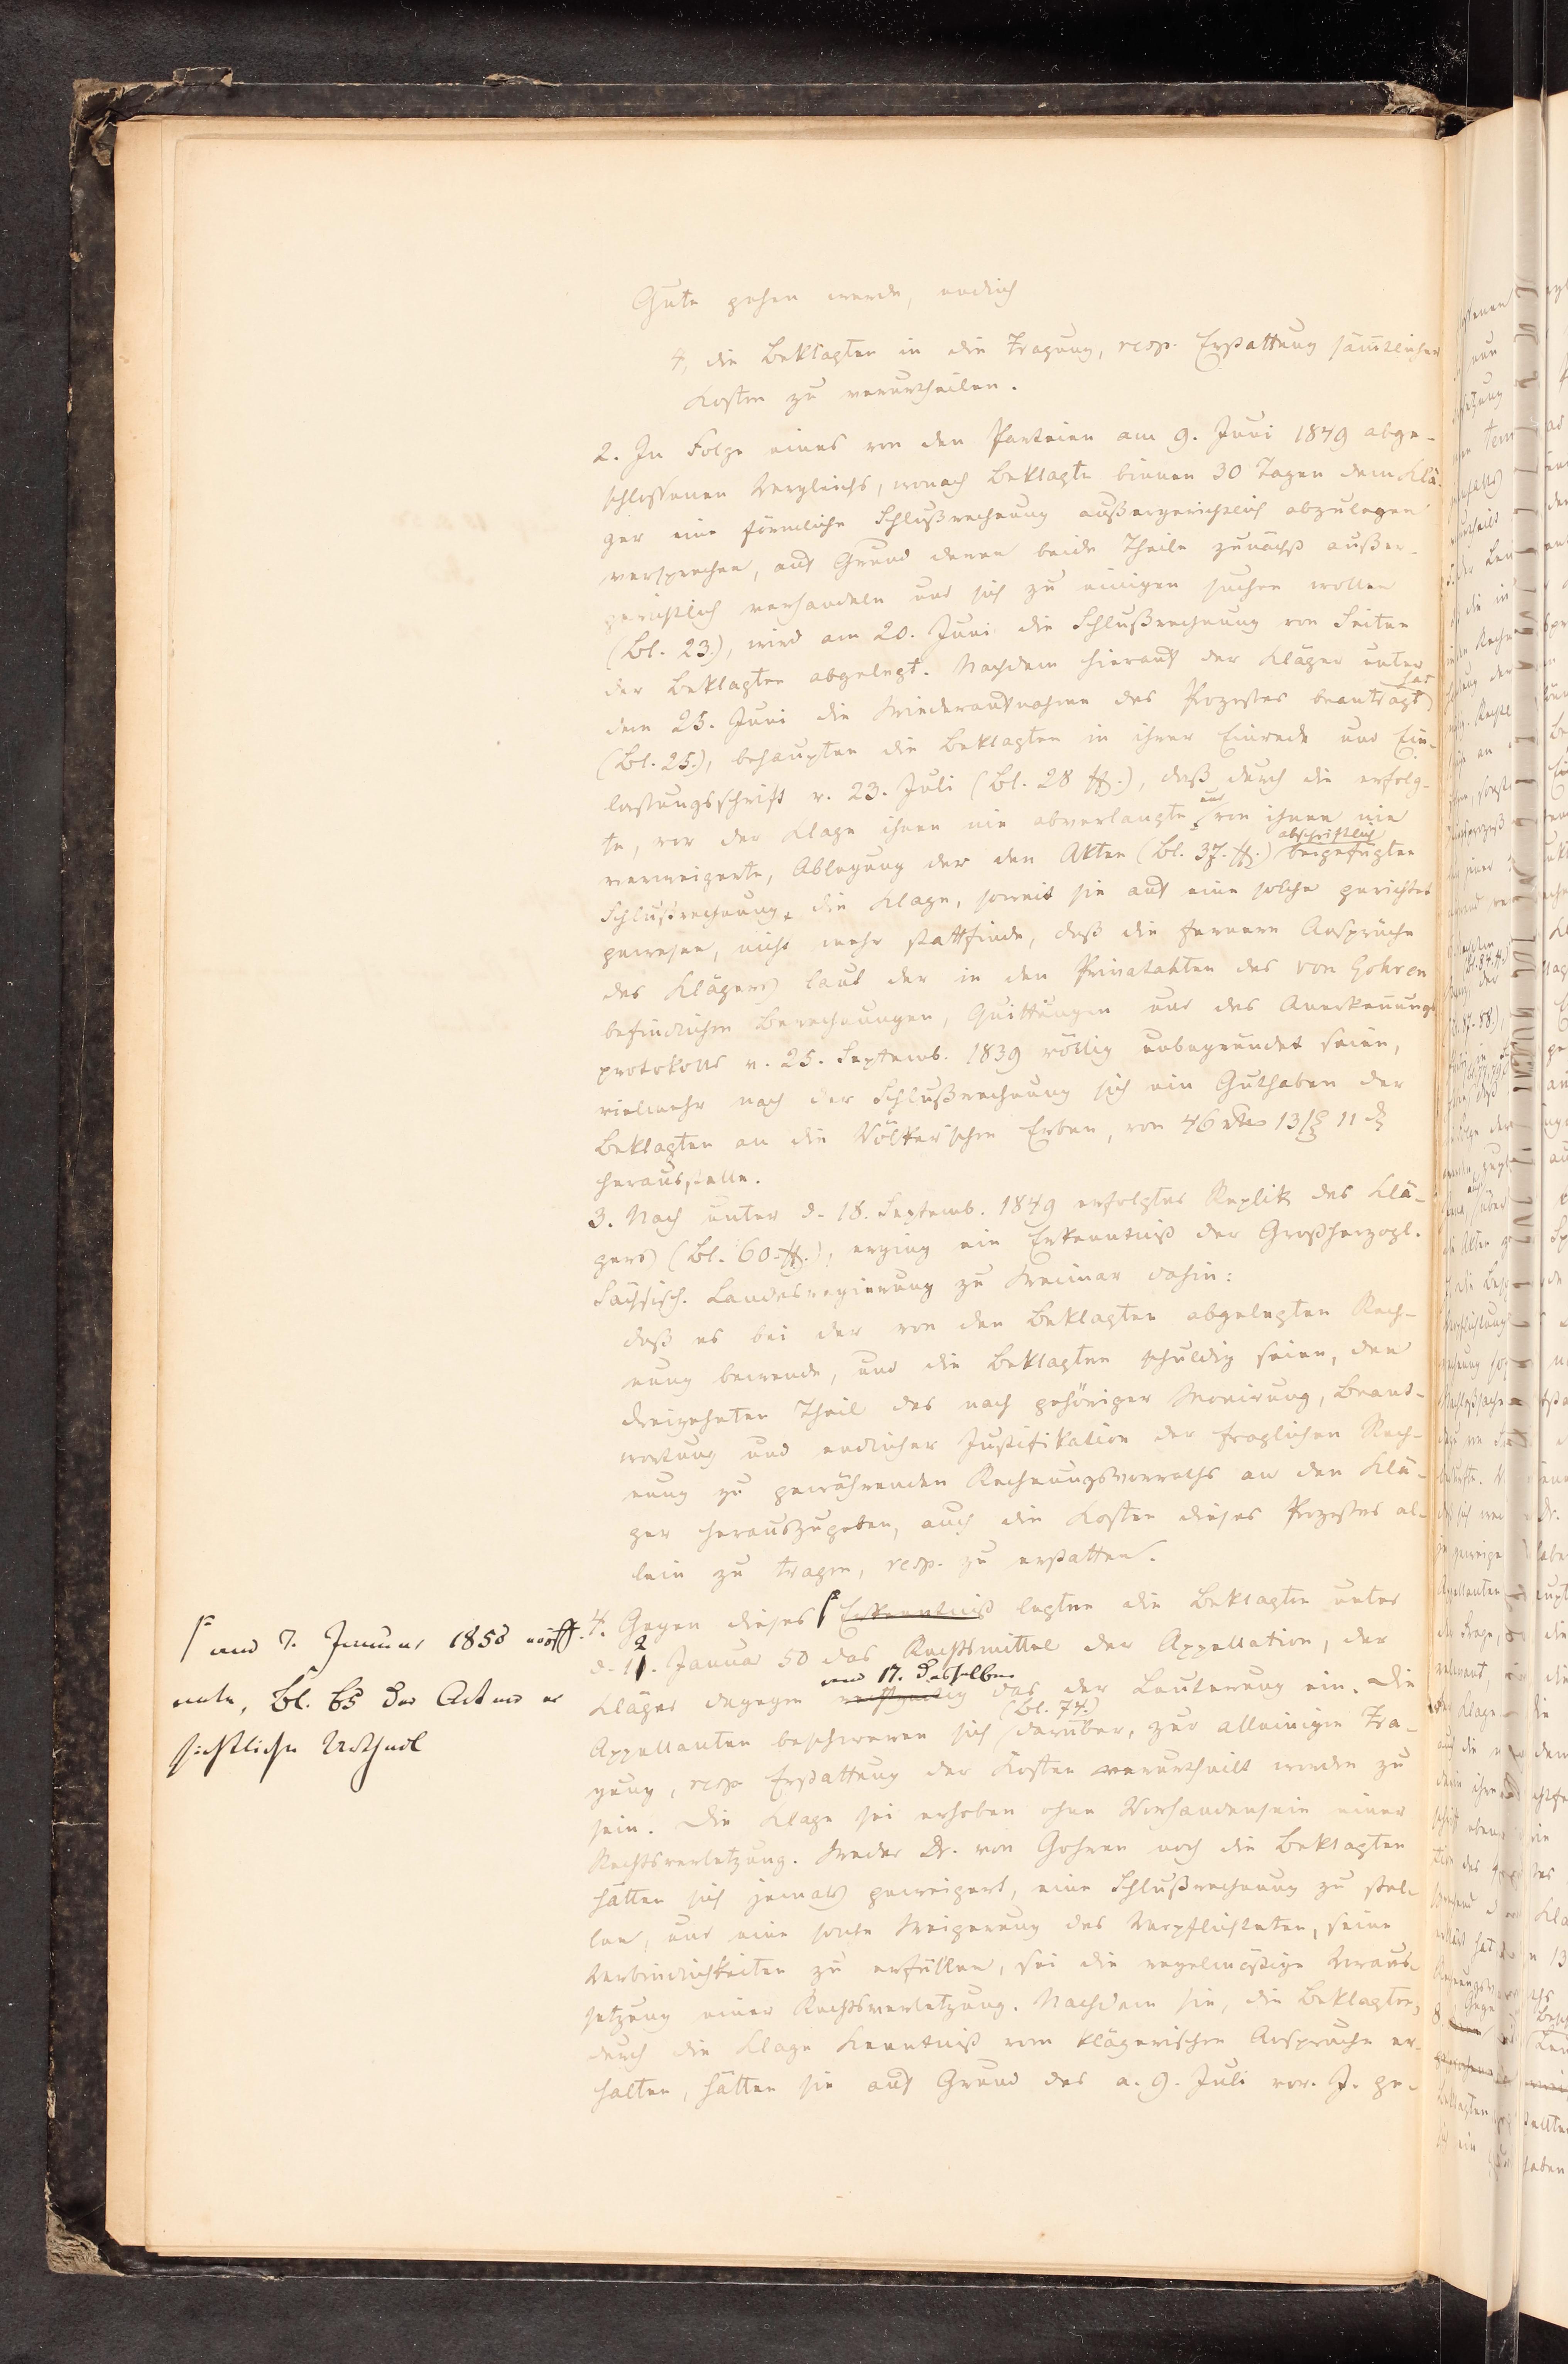 Gute gehen werde, endlich
4, die Beklagten in die Tragung, resp. Erstattung sämtlicher
Kosten zu verurtheilen.
2. In Folge eines von den Parteien am 9. Juni 1849 abge-
schlossenen Vergleichs, wonach Beklagte binnen 30 Tagen dem Klä-
ger eine förmliche Schlußrechnung außergerichtlich abzulegen
versprechen, auf Grund deren beide Theile zunächst außer-
gerichtlich verhandeln und sich zu einigen suchen wollen
(Bl. 23.), wird am 20. Juni die Schlußrechnung von Seiten
der Beklagten abgelegt. Nachdem hierauf der Kläger unter
dem 25. Juni die Wiederaufnahme des Prozesses beantragt hat
(Bl. 25.), behaupten die Beklagten in ihrer Einrede und Ein-
lassungsschrift v. 23. Juli (Bl. 28 ff.), daß durch die erfolg-
te, vor der Klage ihnen nie abverlangte und von ihnen nie
verweigerte, Ablegung der den Akten (Bl. 37. ff.) abschriftlich beigefügten
Schlußrechnung, die Klage, soweit sie auf eine solche gerichtet
gewesen, nicht mehr stattfinde, daß die ferneren Ansprüche
des Klägers laut der in den Privatakten des von Gohren
befindlichen Berechnungen, Quittungen und des Anerkennungs
protokolls v. 25. Septemb. 1839 völlig unbegründet seien,
vielmehr nach der Schlußrechnung sich ein Guthaben der
Beklagten an die Völker'schen Erben, von 46 rthr 13 sg 11 d
herausstelle.
3. Nach unter d. 18. Septemb. 1849 erfolgter Replik des Klä-
gers (Bl. 60. ff.), erging ein Erkenntniß der Großherzogl.
Sächsisch. Landesregierung zu Weimar dahin:
daß es bei der von den Beklagten abgelegten Rech-
nung bewende, und die Beklagten schuldig seien, den
dreizehnten Theil des nach gehöriger Monirung, Beant-
wortung und endlicher Justifikation der fraglichen Rech-
nung zu gewährenden Rechnungsvorraths an den Klä-
ger herauszugeben, auch die Kosten dieses Prozesses al-
lein zu tragen, resp. zu erstatten.
4. Gegen dieses Erkenntniß legten die Beklagten unter
d. 12. Januar 50 das Rechtsmittel der Appellation, der
Kläger dagegen am 17. desselben das der Läuterung ein. Die
Appellanten beschweren sich (Bl. 74.) darüber, zur alleinigen Tra-
gung, resp. Erstattung der Kosten verurtheilt worden zu
sein. Die Klage sei erhoben ohne Vorhandensein einer
Rechtsverletzung. Weder Dr. von Gohren noch die Beklagten
hätten sich jemals geweigert, eine Schlußrechnung zu stel-
len, und eine solche Weigerung des Verpflichteten, seine
Verbindlichkeiten zu erfüllen, sei die regelmäßige Voraus-
setzung einer Rechtsverletzung. Nachdem sie, die Beklagten,
durch die Klage Kenntniß vom klägerischen Anspruche er-
halten, hätten sie auf Grund des a. 9. Juli vor. J. ge-
am 7. Januar 1850 eröff-
nete, Bl. 65 der Acten er
sichtliche Urtheil